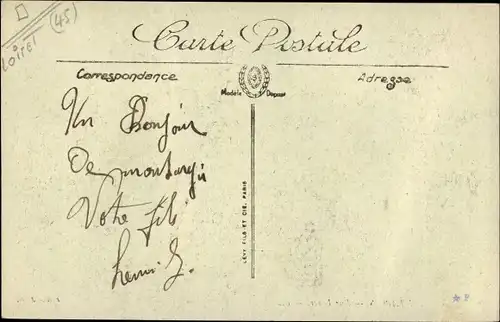 Loiret (45)
Carte Postale
Correspondance
Adresse
Modèle Déposé
Un Bonjour
De montargis
Votre fils
henri
LÉVY FILS ET CIE, PARIS